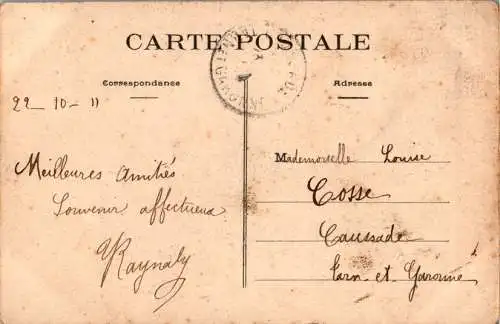 CARTE POSTALE
Correspondance
Adresse
22 - 10 - 11
Meilleures Amitiés
Souvenir affectueux
Raynaly
Mademoiselle Louise
Cosse
Caussade
Tarn et Garonne